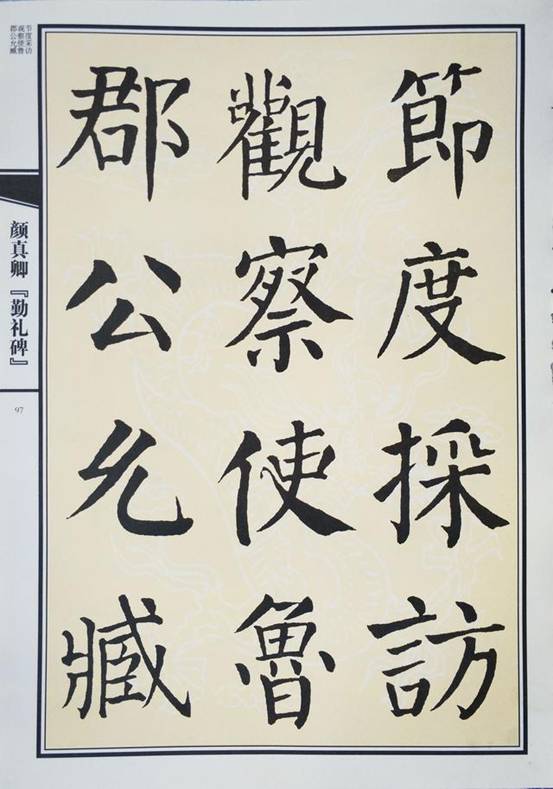 節度採訪
觀察使魯
郡公允臧
节度采访
观察使鲁
郡公允臧
颜真卿『勤礼碑』
97